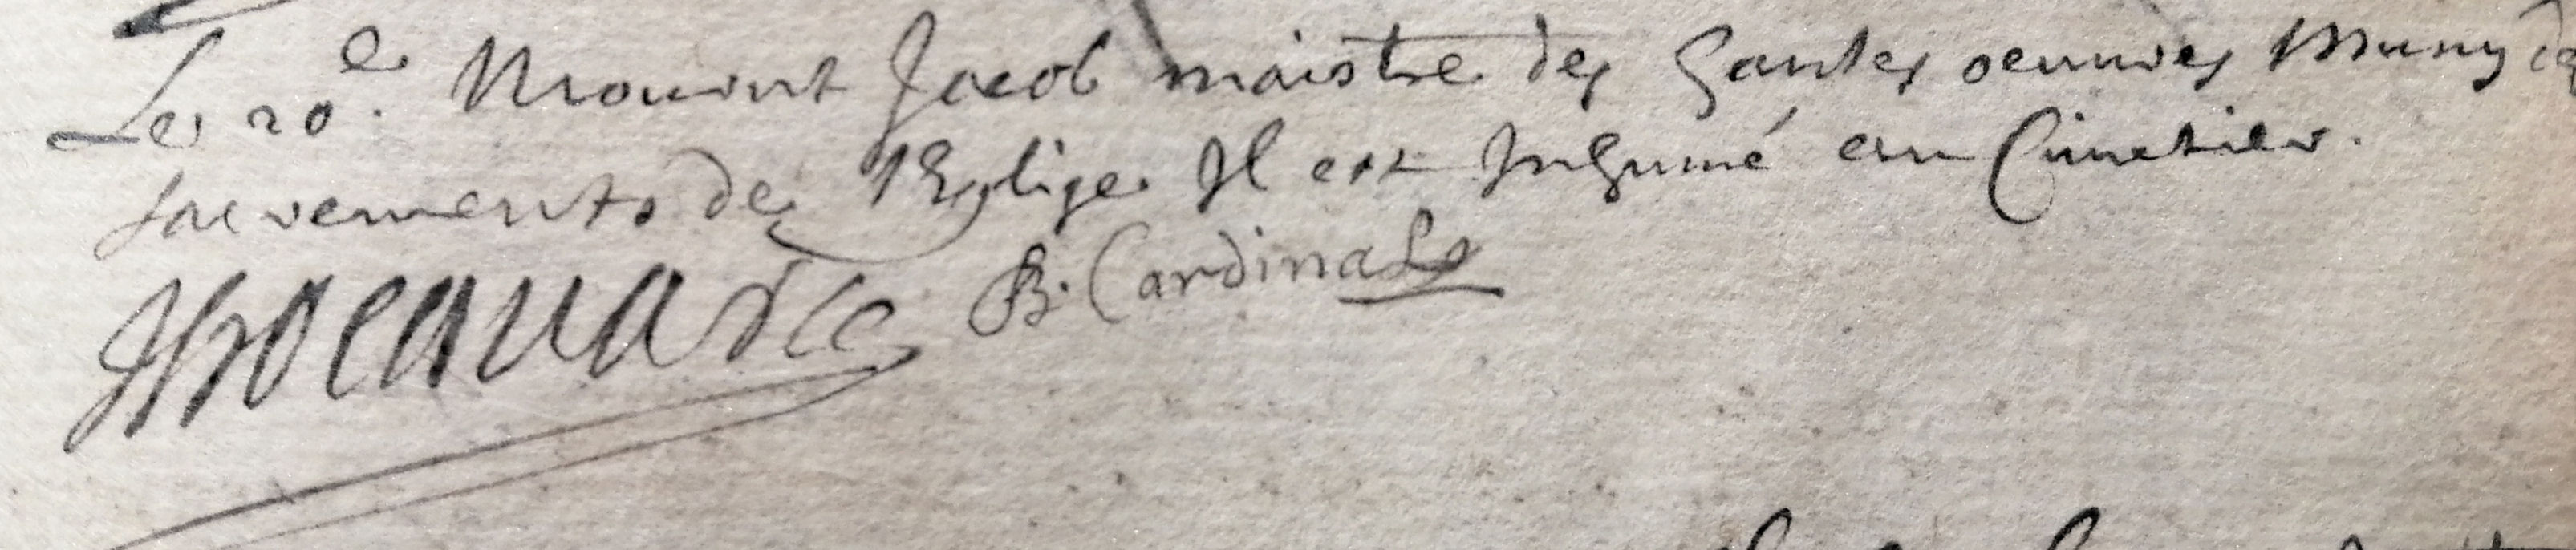 Le 20.e Mourut Jacob maistre des hautes oeuvres Muny des
sacrements de l'Eglise Il est Inhumé au Cimetier.
B. Cardinal